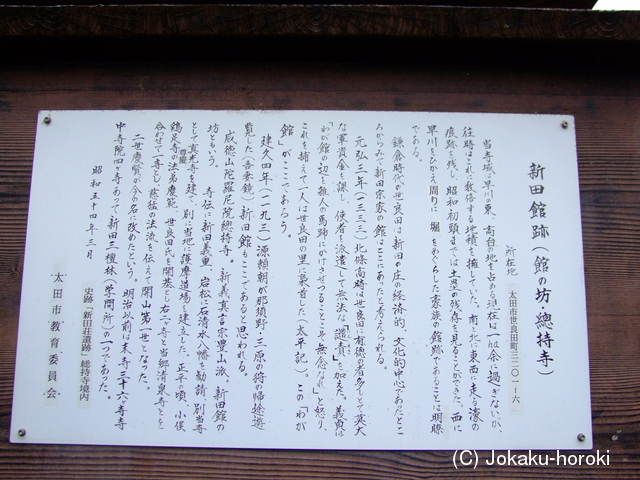 新田館跡(館の坊・總持寺)
所在地 太田市世良田町三二〇一ー六
当寺域は早川の東、高台の地を占める。現在は一f余に過ぎないが、
往時はこれに数倍する地積を擁していた。南と北に東西に走る濠の
痕跡を残し、昭和初頭までは土塁の残存を見ることができた。西に
早川をひかえ、周りに堀をめぐらした豪族の館跡であることは明瞭
である。
鎌倉時代が世良田は新田の庄の経済的、文化的中心であったとこ
ろからみて新田宗家の館はここにあったと考えられる。
元弘三年(一三三三)北條高時は世良田に有徳の者多しとして莫大
な軍資金を課し、使者を派遣して無法な「譴責」を加えた。義貞は
「わが館の辺を雑人の馬蹄にかけさせつることこそ無念なれ」と怒り、
これを捕えて一人は世良田の里に梟首した(太平記)。この「わが
館」がここであろう。
建久四年(一一九三)源頼朝が那須野・三原の狩の帰途遊
覧した(吾妻鏡)新田館もここであると思われる。
威徳山陀羅尼院總持寺。新義真言宗豊山派。新田館の
坊ともいう。
寺伝に新田義重、岩松に石清水八幡を勧請、別当寺
として真光寺を建て、別に当地に護摩道場を建立した。正平の頃、小俣
鶏足寺の法弟慶範 世良田氏を開基とし右二寺と当郷清泉寺とを
合わせて一寺とし慈猛の法流を伝えて開山第一世となった。
二世慶賢が今の名に改めたという。明治以前は末寺三十六ヶ寺、寺
中寺院四ヶ寺あって新田三檀林(学問所)の一つであった。
昭和五十四年三月
史跡「新田荘遺跡」総持寺境内
太田市教育委員会
(C) Jokaku-horoki